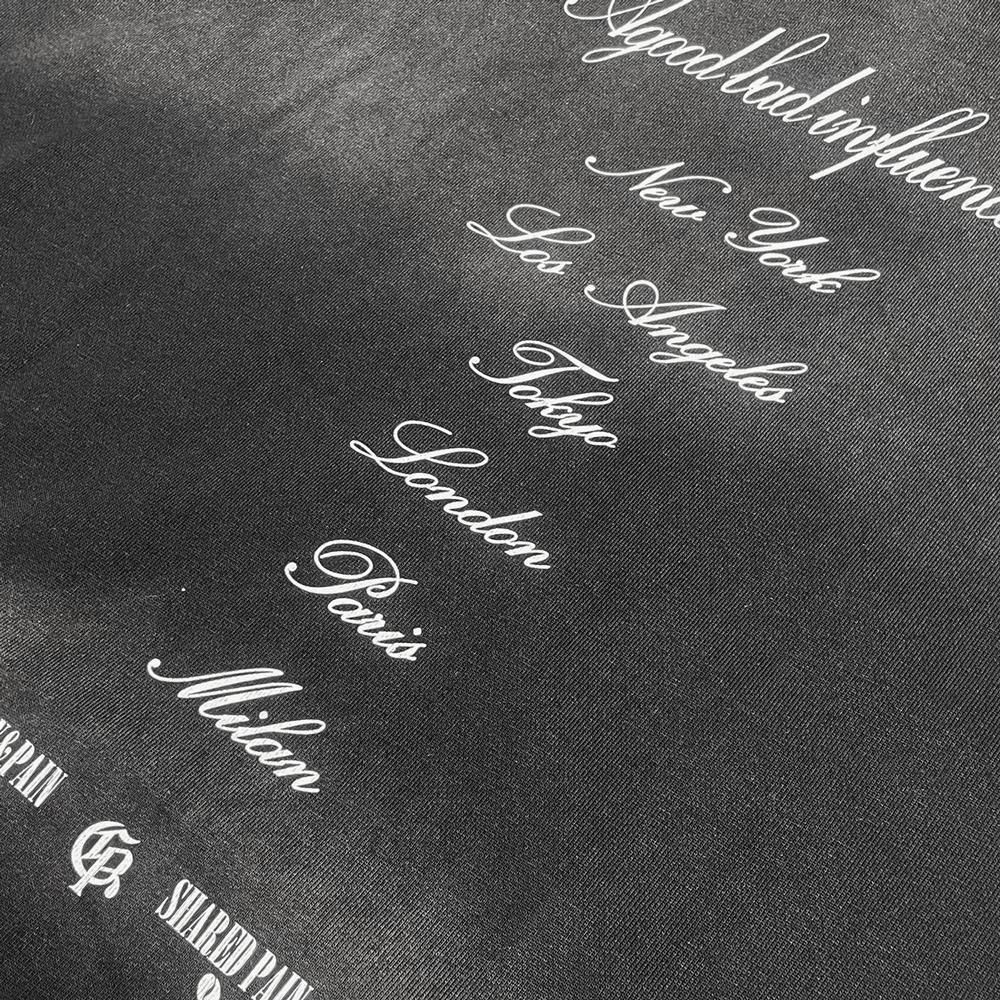 A good bad influenc
New York
Los Angeles
Tokyo
London
Paris
Milan
&PAIN
SHARED PAIN